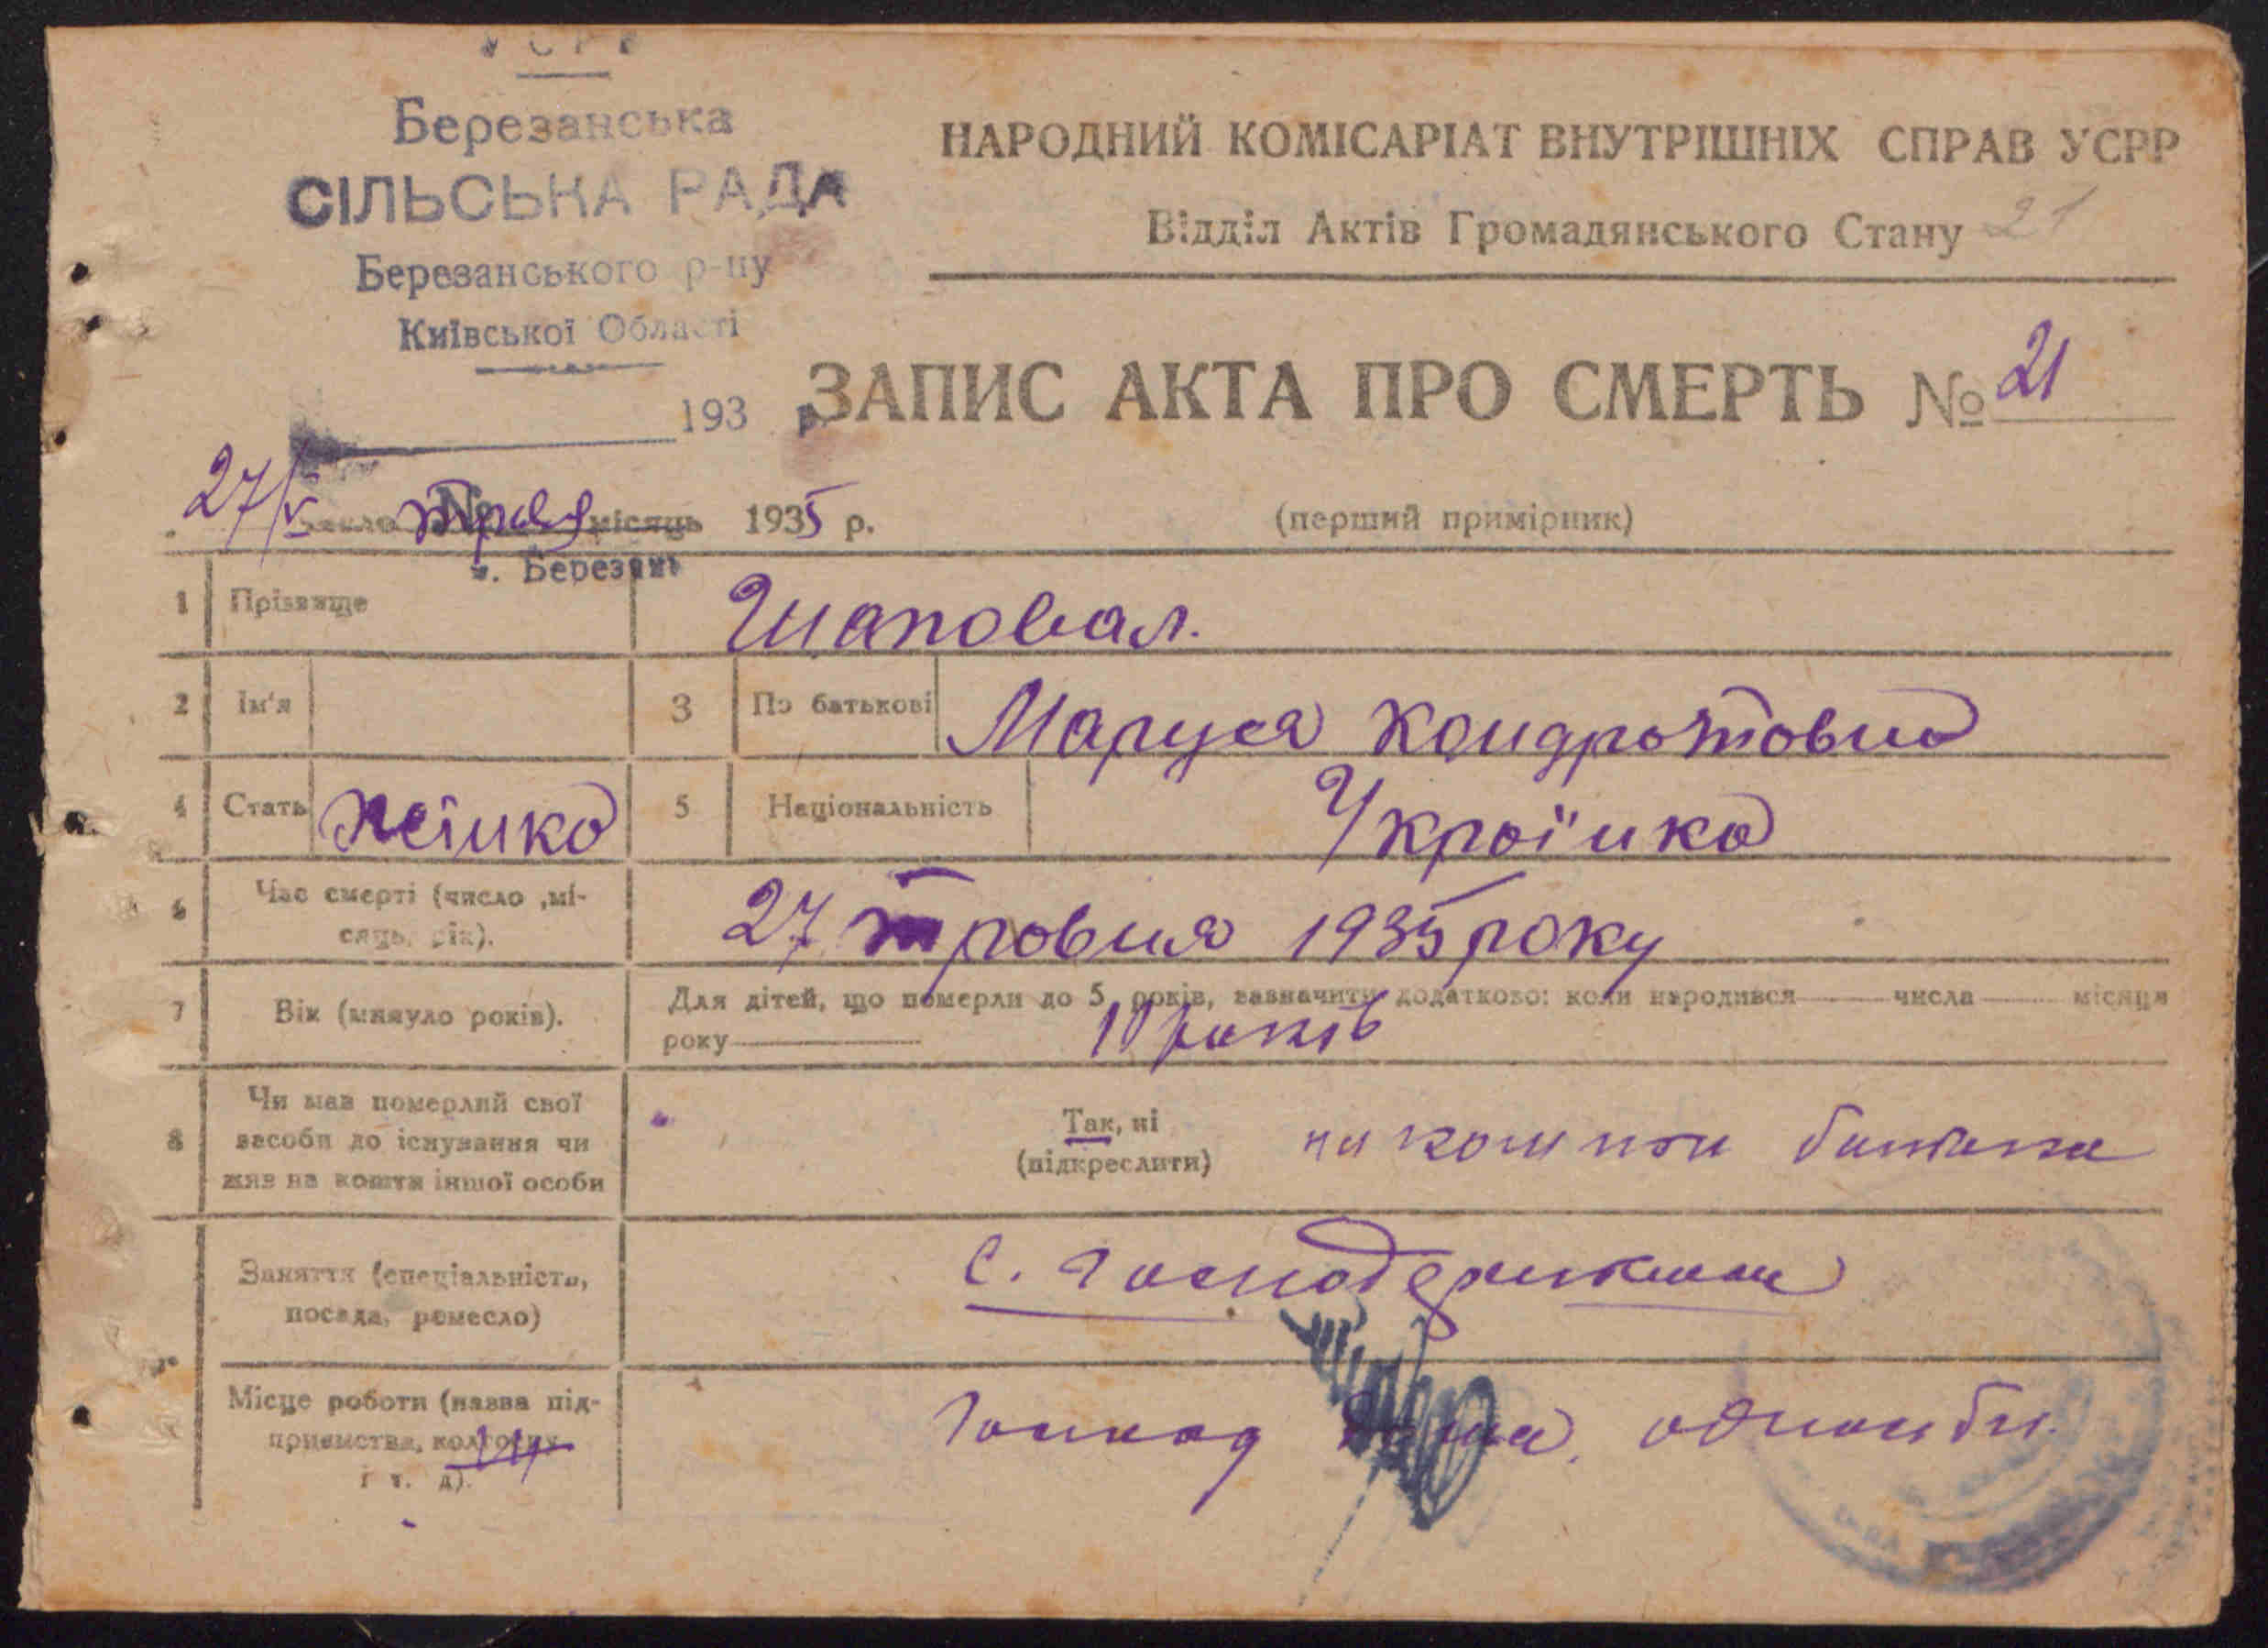 УСРР
Березанська
СІЛЬСЬКА РАДА
Березанського р-ну
Київської Області
193 р.
НАРОДНИЙ КОМІСАРІАТ ВНУТРІШНІХ СПРАВ УСРР
Відділ Актів Громадянського Стану 21
ЗАПИС АКТА ПРО СМЕРТЬ № 21
27/V число трав місяць 1935 р.
(перший примірник)
№
м. Березань
1 Прізвище Шаповал.
2 Ім'я 3 По батькові Маруся Кондратовна
4 Стать жінка 5 Національність Українка
6 Час смерті (число, мі-
сяць, рік). 27 травня 1935 року
7 Вік (минуло років). Для дітей, що померли до 5 років, зазначити додатково: коли народився числа місяця
року 10 років
8 Чи мав померлий свої
засоби до існування чи
жив на кошти іншої особи
Так, ні
(підкреслити)
на кошти батька
Заняття (спеціальність,
посада, ремесло)
с.
Місце роботи (назва під-
приємства, колгоспу
і т. д).
одноосібн.